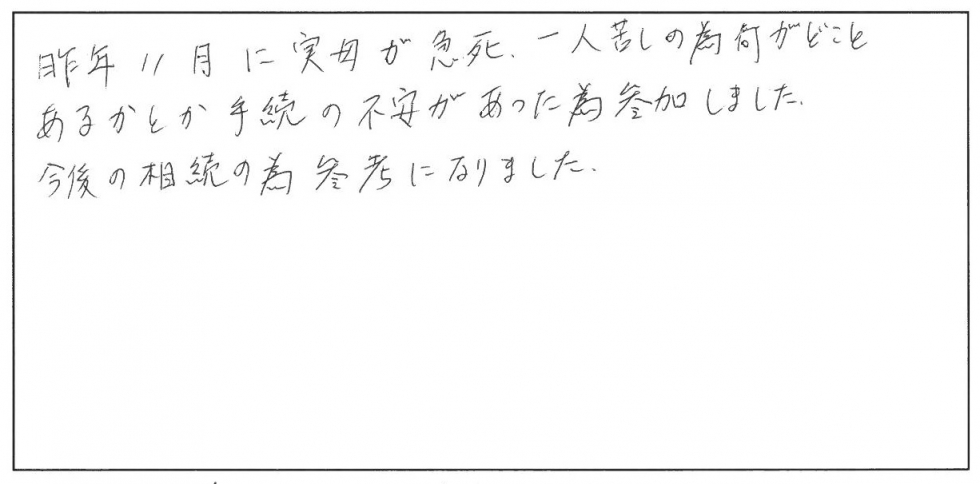 昨年11月に実母が急死、一人苦しの為何がどこと
あるかとか手続の不安があった為参加しました。
今後の相続の為参考になりました。